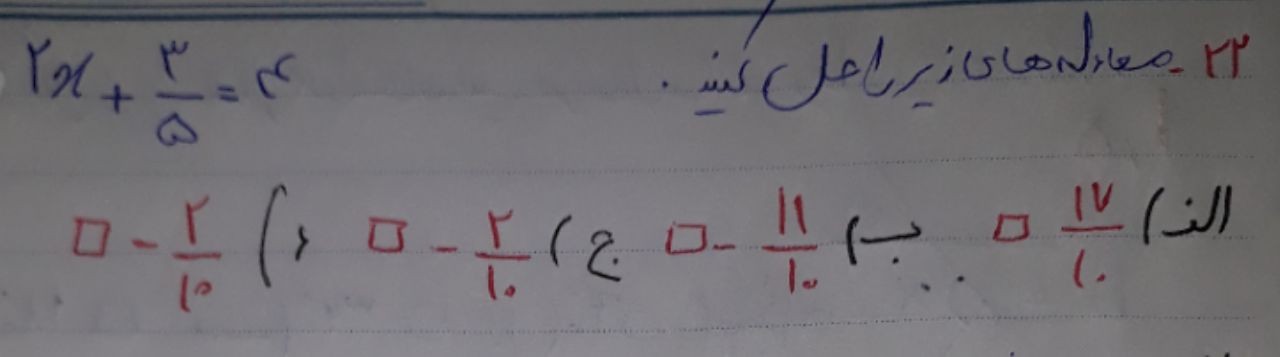 ۲۲- معادله های زیر را حل کنید. ۲x + ۳/۵ = ۴
الف) ۱۷/۱۰ □ ب) ۱۱/۱۰ - □ ج) ۲/۱۰ - □ د) ۲/۱۰ - □